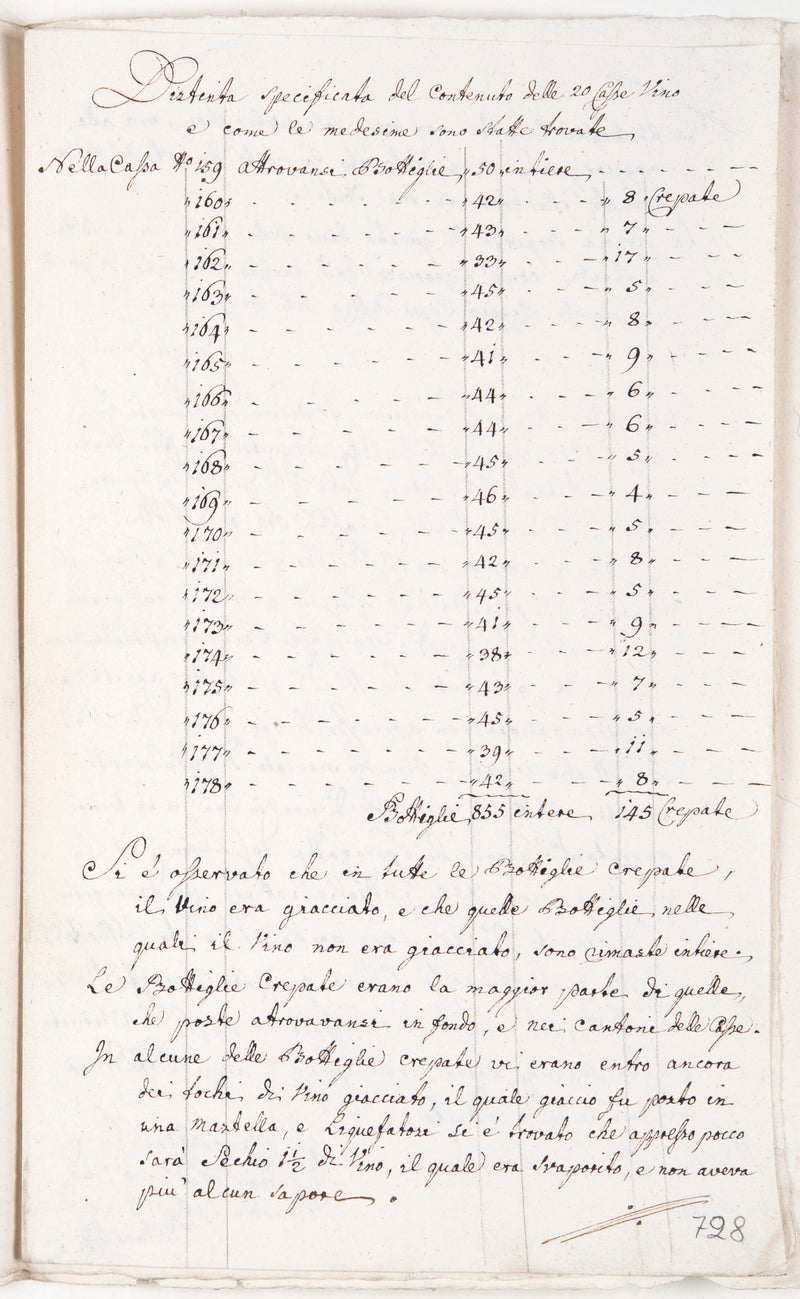 Distinta specificata del Contenuto delle 20 Casse Vino
e come le medesime sono statte trovate
Nella Cassa No 159 attrovansi Bottiglie 50 intiere
160 42 8 Crepate
161 43 7
162 33 17
163 45 5
164 42 8
165 41 9
166 44 6
167 44 6
168 45 5
169 46 4
170 45 5
171 42 8
172 45 5
173 41 9
174 38 12
175 43 7
176 45 5
177 39 11
178 42 8
Bottiglie 855 intere 145 Crepate
Si é osservato che in tutte le Bottiglie crepate,
il Vino era giacciato, e che quelle Bottiglie nelle
quali il Vino non era giacciato, sono rimaste intiere.
Le Bottiglie Crepate erano la maggior parte di quelle,
che poste atrovavansi in fondo, e nei Cantoni delle Casse.
In alcune delle Bottiglie crepate vi erano entro ancora
dei tochi di Vino giacciato, il quale giaccio fu posto in
una Mastella, e Liquefatosi si é trovato che appresso pocco
sarà Sechio 1½ di Vino, il quale era svaporito, e non aveva
più alcun sapore.
728